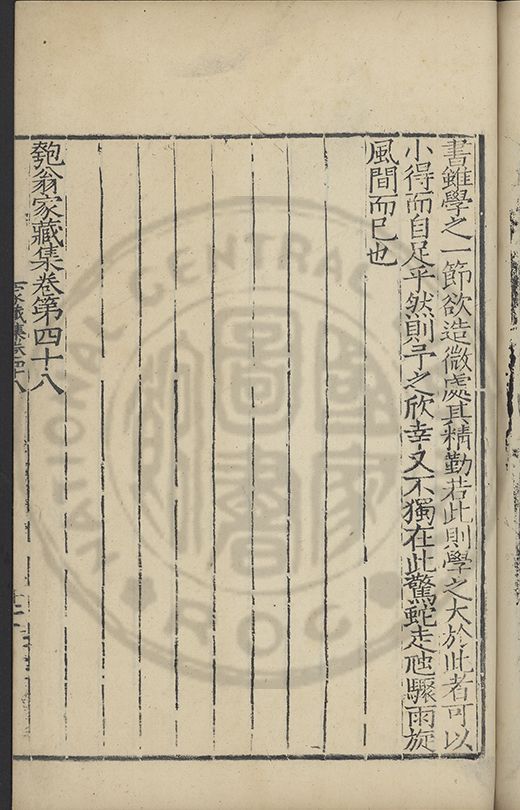 書雖學之一節欲造微處其精勤若此則學之大於此者可以
小得而自足乎然則予之欣幸又不獨在此驚蛇走虺驟雨旋
風間而已也
匏翁家藏集卷第四十八
家藏集卷四十八
NATIONAL CENTRAL LIBRARY
ROC